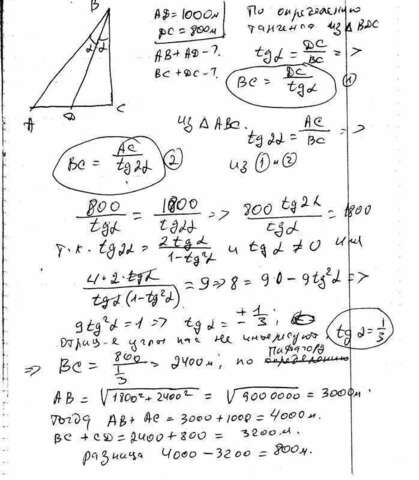 B
α α
A D C
AD = 1000м
DC = 800м
AB + AD - ?
BC + DC - ?
По определению
тангенса из △ BDC
tgα = DC/BC = >
BC = DC/tgα (1)
из △ ABC.
tg2α = AC/BC = >
BC = AC/tg2α (2)
из (1) и (2)
800/tgα = 1800/tg2α => 800 tg2α/tgα = 1800
т.к. tg2α = 2tgα/1-tg²α и tgα ≠ 0 имеем
4·2·tgα/tgα(1-tg²α) = 9 => 8 = 9 - 9tg²α =>
9tg²α = 1 => tgα = ± 1/3 ;
отриц-е углы нас не интересуют, tgα = 1/3
=> BC = 800/(1/3) = 2400м ; по Пифагору
AB = √1800² + 2400² = √9000000 = 3000м.
тогда AB + AC = 3000 + 1000 = 4000м.
BC + CD = 2400 + 800 = 3200м.
разница 4000 - 3200 = 800м.